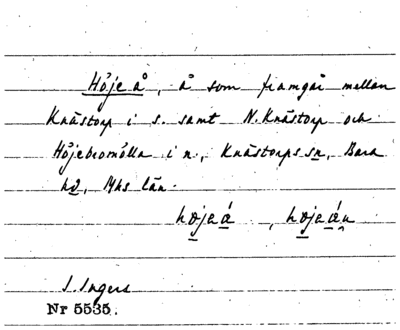 Höje å, å som framgår mellan
Knästorp i s. samt N. Knästorp och
Höjebromölla i n., Knästorps sn, Bara
hd, Mhs län.
högeá, högeán
I. Ingers
Nr 5535.